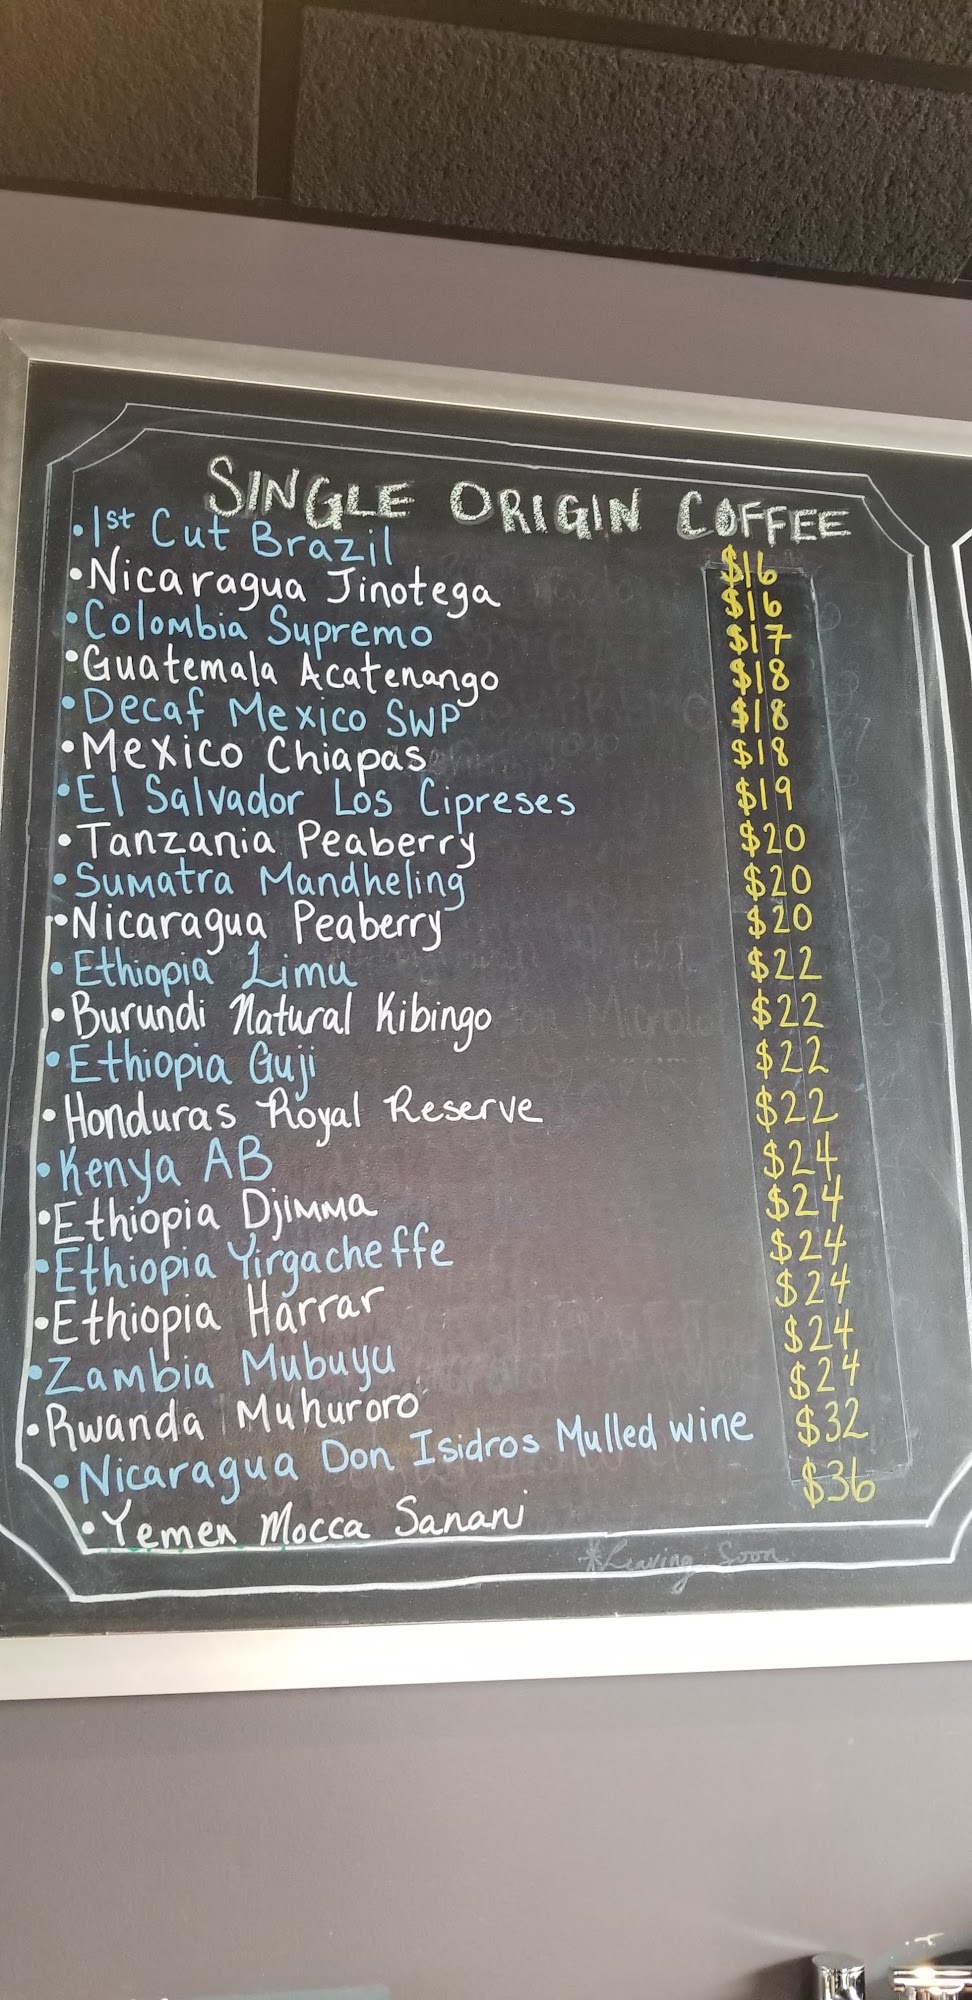 SINGLE ORIGIN COFFEE
• 1st Cut Brazil $16
• Nicaragua Jinotega $16
• Colombia Supremo $17
• Guatemala Acatenango $18
• Decaf Mexico SWP $18
• Mexico Chiapas $18
• El Salvador Los Cipreses $19
• Tanzania Peaberry $20
• Sumatra Mandheling $20
• Nicaragua Peaberry $20
• Ethiopia Limu $22
• Burundi Natural Kibingo $22
• Ethiopia Guji $22
• Honduras Royal Reserve $22
• Kenya AB $24
• Ethiopia Djimma $24
• Ethiopia Yirgacheffe $24
• Ethiopia Harrar $24
• Zambia Mubuyu $24
• Rwanda Muhuroro $24
• Nicaragua Don Isidros Mulled wine $32
• Yemen Mocca Sanani $36
*Leaving Soon